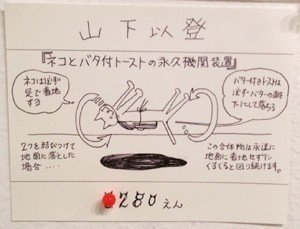 山下以登
『ネコとバタ付トーストの永久機関装置』
ネコは必ず
足で着地
する
バター付きトーストは
必ずバターの面を
下にして落ちる
2つを結びつけて
地面に落とした
場合....
この合体物は永遠に
地面に着地せずに
くるくると回り続けます。
280えん